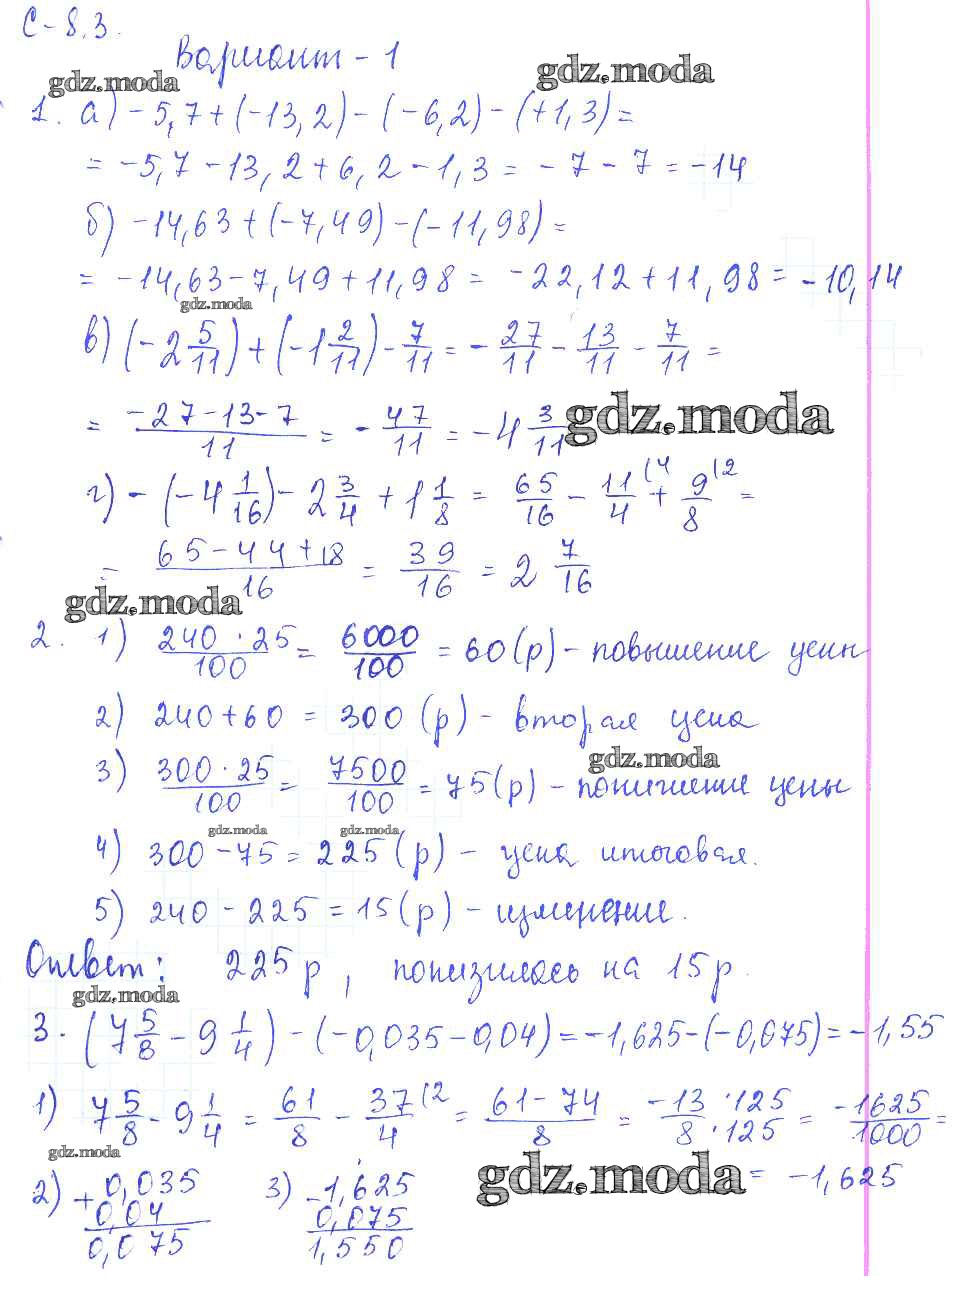 С-8.3.
Вариант-1
gdz.moda gdz.moda
1. а) -5,7+(-13,2)-(-6,2)-(+1,3)=
= -5,7-13,2+6,2-1,3= -7-7=-14
б) -14,63+(-7,49)-(-11,98)=
= -14,63-7,49+11,98= -22,12+11,98=-10,14
gdz.moda
в) (-2 5/11)+(-1 2/11)-7/11=-27/11-13/11-7/11=
= (-27-13-7)/11=-47/11=-4 3/11
gdz.moda
г) -(-4 1/16)-2 3/4+1 1/8= 65/16-11/4(4+9/8(2=
= (65-44+18)/16=39/16=2 7/16
gdz.moda
2. 1) 240·25/100=6000/100=60(р)-повышение цены
2) 240+60=300(р)-вторая цена
gdz.moda
3) 300·25/100=7500/100=75(р)-понижение цены
gdz.moda gdz.moda
4) 300-75=225(р)-цена итоговая.
5) 240-225=15(р)-изменение.
Ответ: 225р, понизилась на 15р.
gdz.moda
3. (7 5/8-9 1/4)-(-0,035-0,04)=-1,625-(-0,075)=-1,55
1) 7 5/8-9 1/4=61/8-37/4(2=(61-74)/8=-13·125/8·125=-1625/1000=
gdz.moda
gdz.moda = -1,625
2) +0,035 3) -1,625
0,04 0,075
0,075 1,550